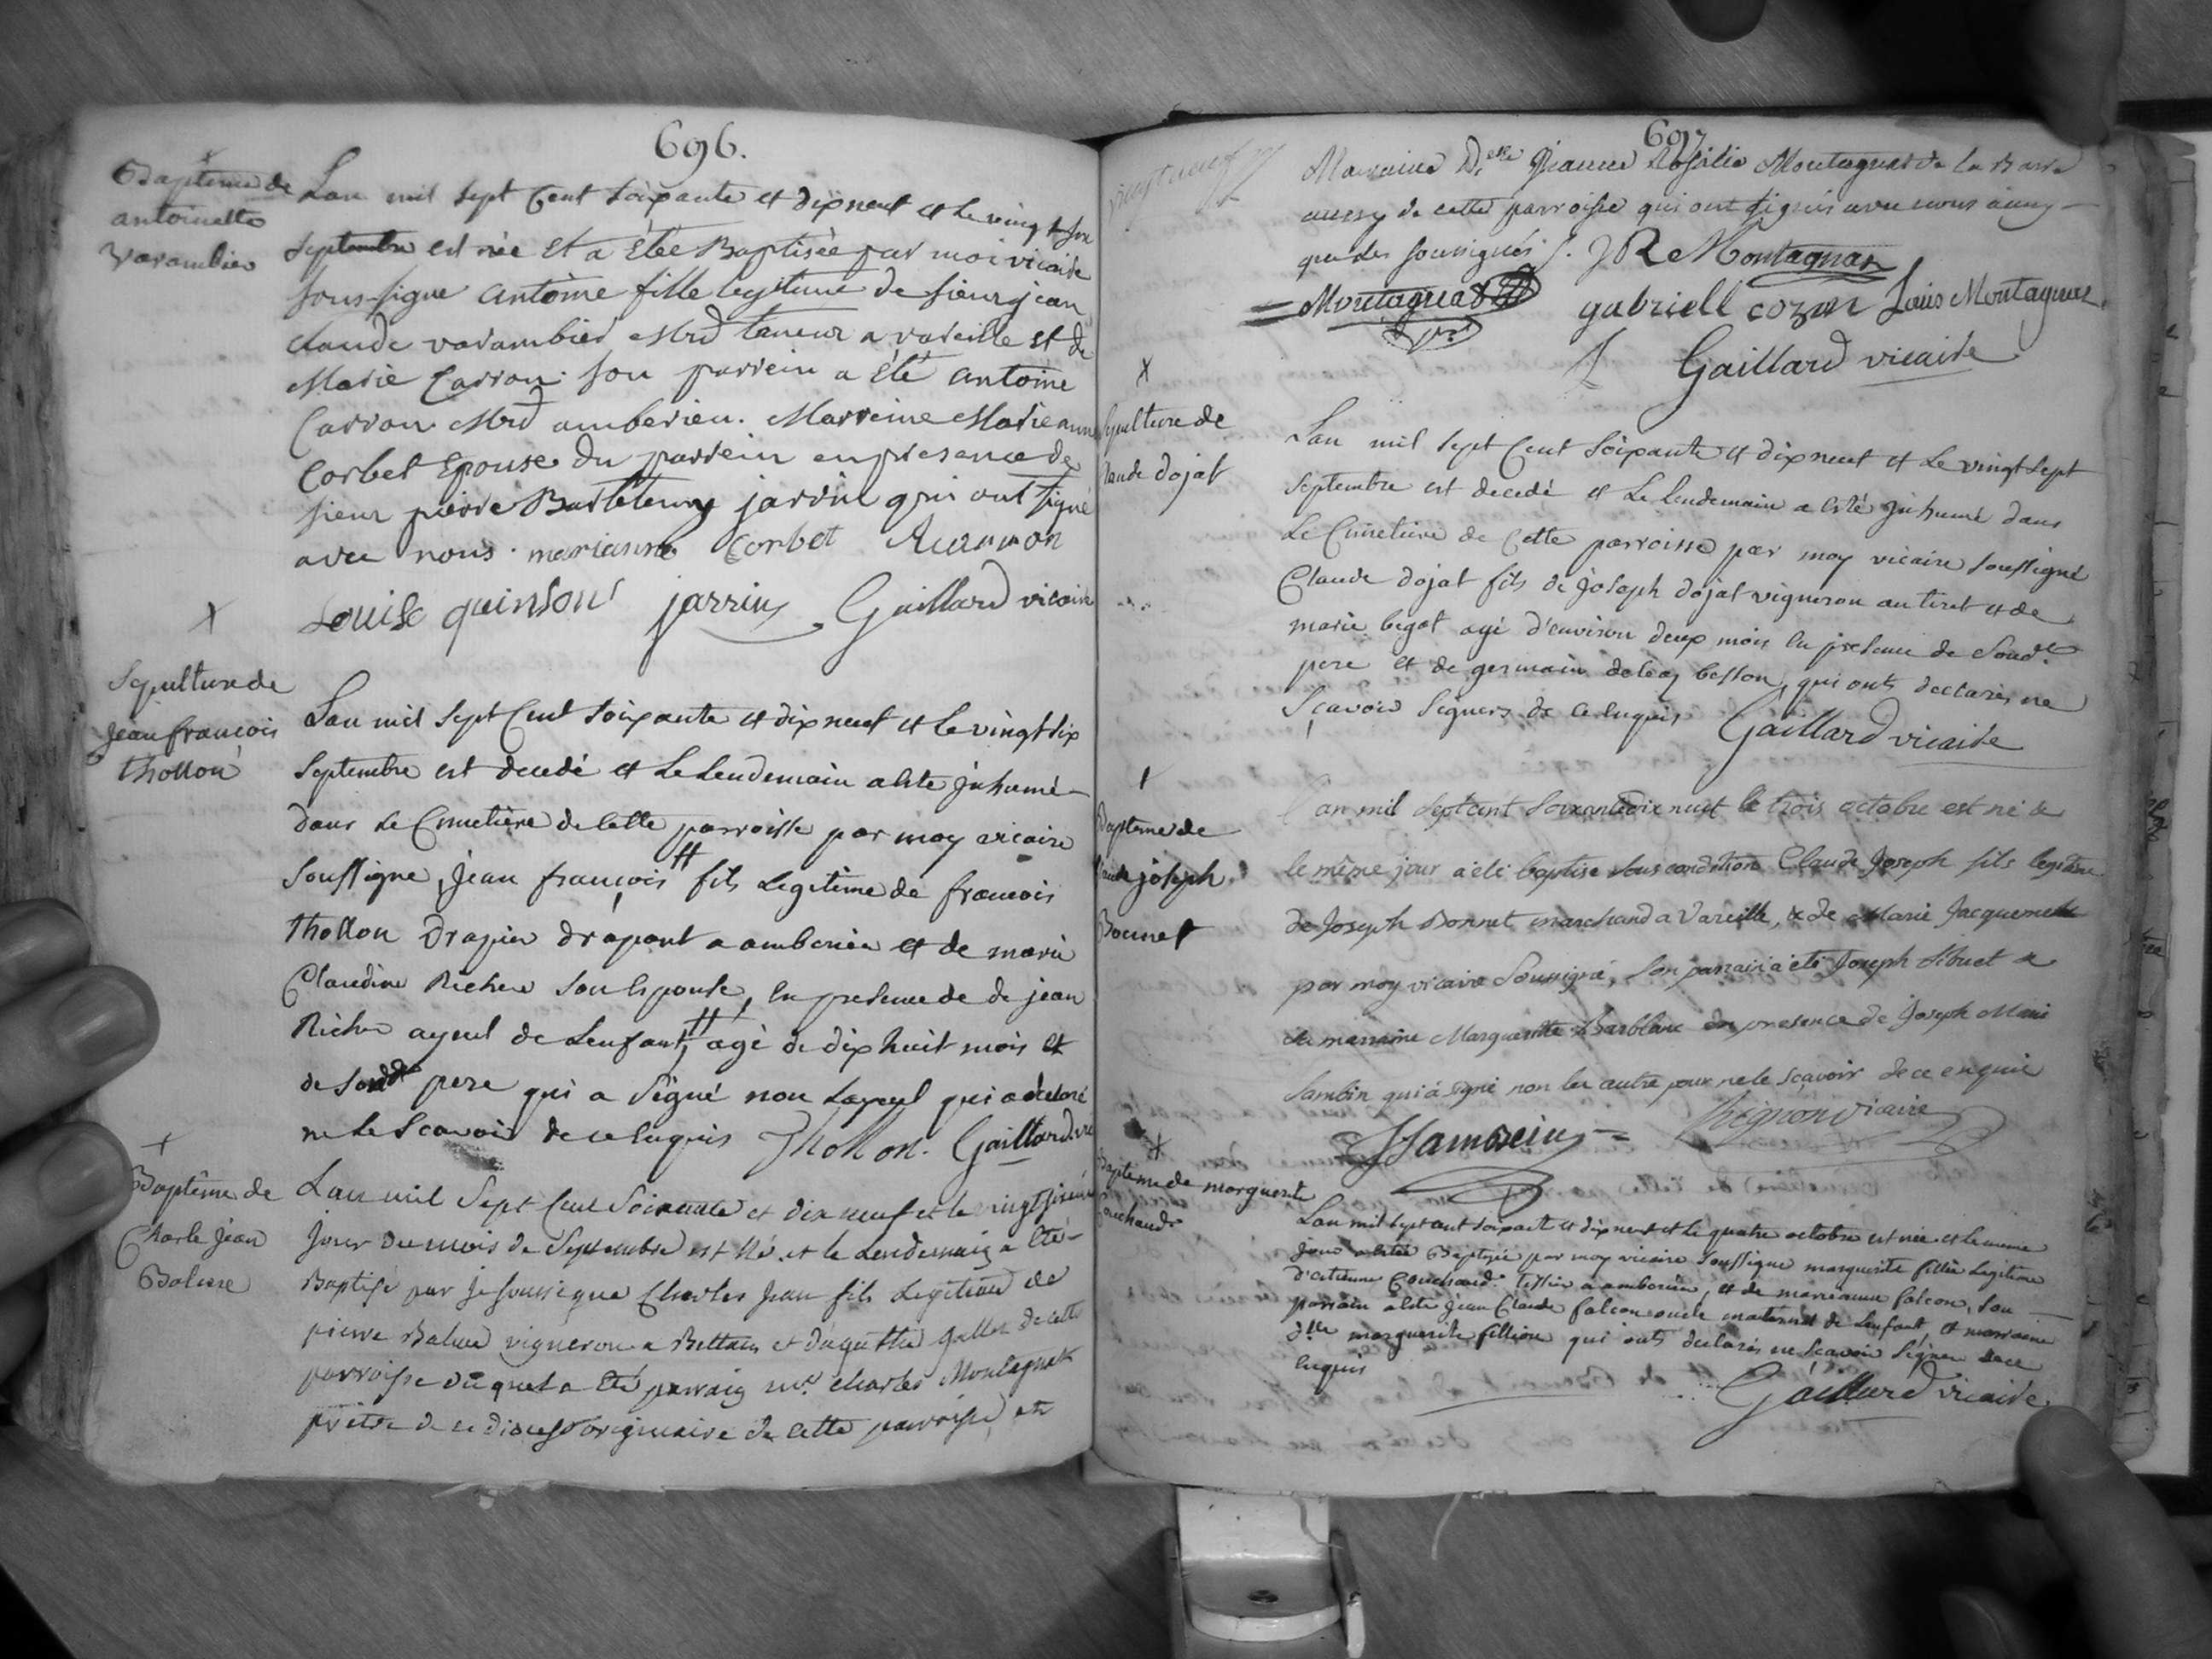 696.
Baptême de
antoinette
Varambier
Lan mil sept Cent soixante et dix neuf et le vingt six
septembre est née et a étée Baptisée par moi vicaire
sous-signe antoine fille legitime de sieur jean
claude varambier Mrd taneur a vareille et de
Marie Carron. son parrein a été antoine
Carron Mrd amberieu. Marreine Marie anne
Corbet Epouse du parrein en presence de
sieur pierre Barthelemy jarrin qui ont signé
avec nous. marianne Corbet
Louise quinson jarrin Gaillard vicaire
X
Sepulture de
jean françois
thollon
Lan mil sept Cent soixante et dix neuf et le vingt six
septembre est decedé et le lendemain a esté inhumé
dans le Cimetière de cette parroisse par moy vicaire
soussigne, jean françois # fils legitime de francois
thollon drapier drapant a amberieu et de marie
Claudine Richer son epouse, en presence de de jean
Richer ayeul de lenfant, # agé de dix huit mois et
de sondt pere qui a signé non layeul qui a declaré
ne le scavoir de ce enquis Thollon. Gaillard vre
+
Baptême de
Charle jean
Baluse
Lan mil sept Cent Soixante et dix neuf et le vingt sixieme
jour du mois de Septembre est né et le lendemain a été
Baptisé par je soussigne Charles jean fils legitime de
pierre vigneron a Bettans et dagathe de cette
parroisse duquel a été parrain mre. charles Montagnat
prêtre de ce diocese originaire de cette parroisse, et
697
Marraine Delle jeanne Rosalie Montagnat de la Barre
aussy de cette parroisse qui ont signés avec nous
que les sousignés. JR Montagnat
Montagnat gabriell cozon Louis Montagnat
Gaillard vicaire
X
Sepulture de
claude dojat
Lan mil sept Cent soixante et dix neuf et le vingt sept
septembre est decedé et le lendemain a esté inhumé dans
le Cimetiere de cette parroisse par moy vicaire soussigné
Claude dojat fils de joseph dojat vigneron au tiret et de
marie begot agé d'environ deux mois en presence de sondt
pere et de germain beston, qui onts declarés ne
sçavoir signers de ce enquis Gaillard vicaire
+
Baptême de
Claude joseph
Bonnet
L'an mil sept cent soixante dix neuf le trois octobre est né &
le même jour a été baptisé sous condition Claude Joseph fils legitime
de Joseph Bonnet marchand a Vareille, & de Marie Jacquemet
par moy vicaire soussigné, son parrain a été Joseph Sibuet &
sa marraine Marguerite Barblanc en presence de Joseph Marie
Jambin qui a signé non les autre pour ne le sçavoir de ce enquis
vicaire
+
Baptême de marguerite
Couchaud
Lan mil sept cent soixante et dix neuf et le quatre octobre est née et le meme
jour a estée Baptisée par moy vicaire soussigne marguerite fillie legitime
d'etienne Couchaud tissier a amberieu, et de marieanne falcon, son
parrain a esté jean Claude falcon oncle maternel de lenfant, et marraine
dlle marguerite fillion qui onts declarés ne scavoir signer de ce
enquis
Gaillard vicaire